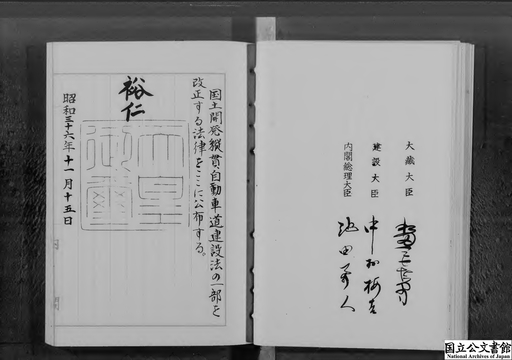 国土開発縦貫自動車道建設法の一部を
改正する法律をここに公布する。
裕仁
天皇御璽
昭和三十六年十一月十五日
大蔵大臣
建設大臣 中村梅吉
内閣総理大臣 池田勇人
国立公文書館
National Archives of Japan